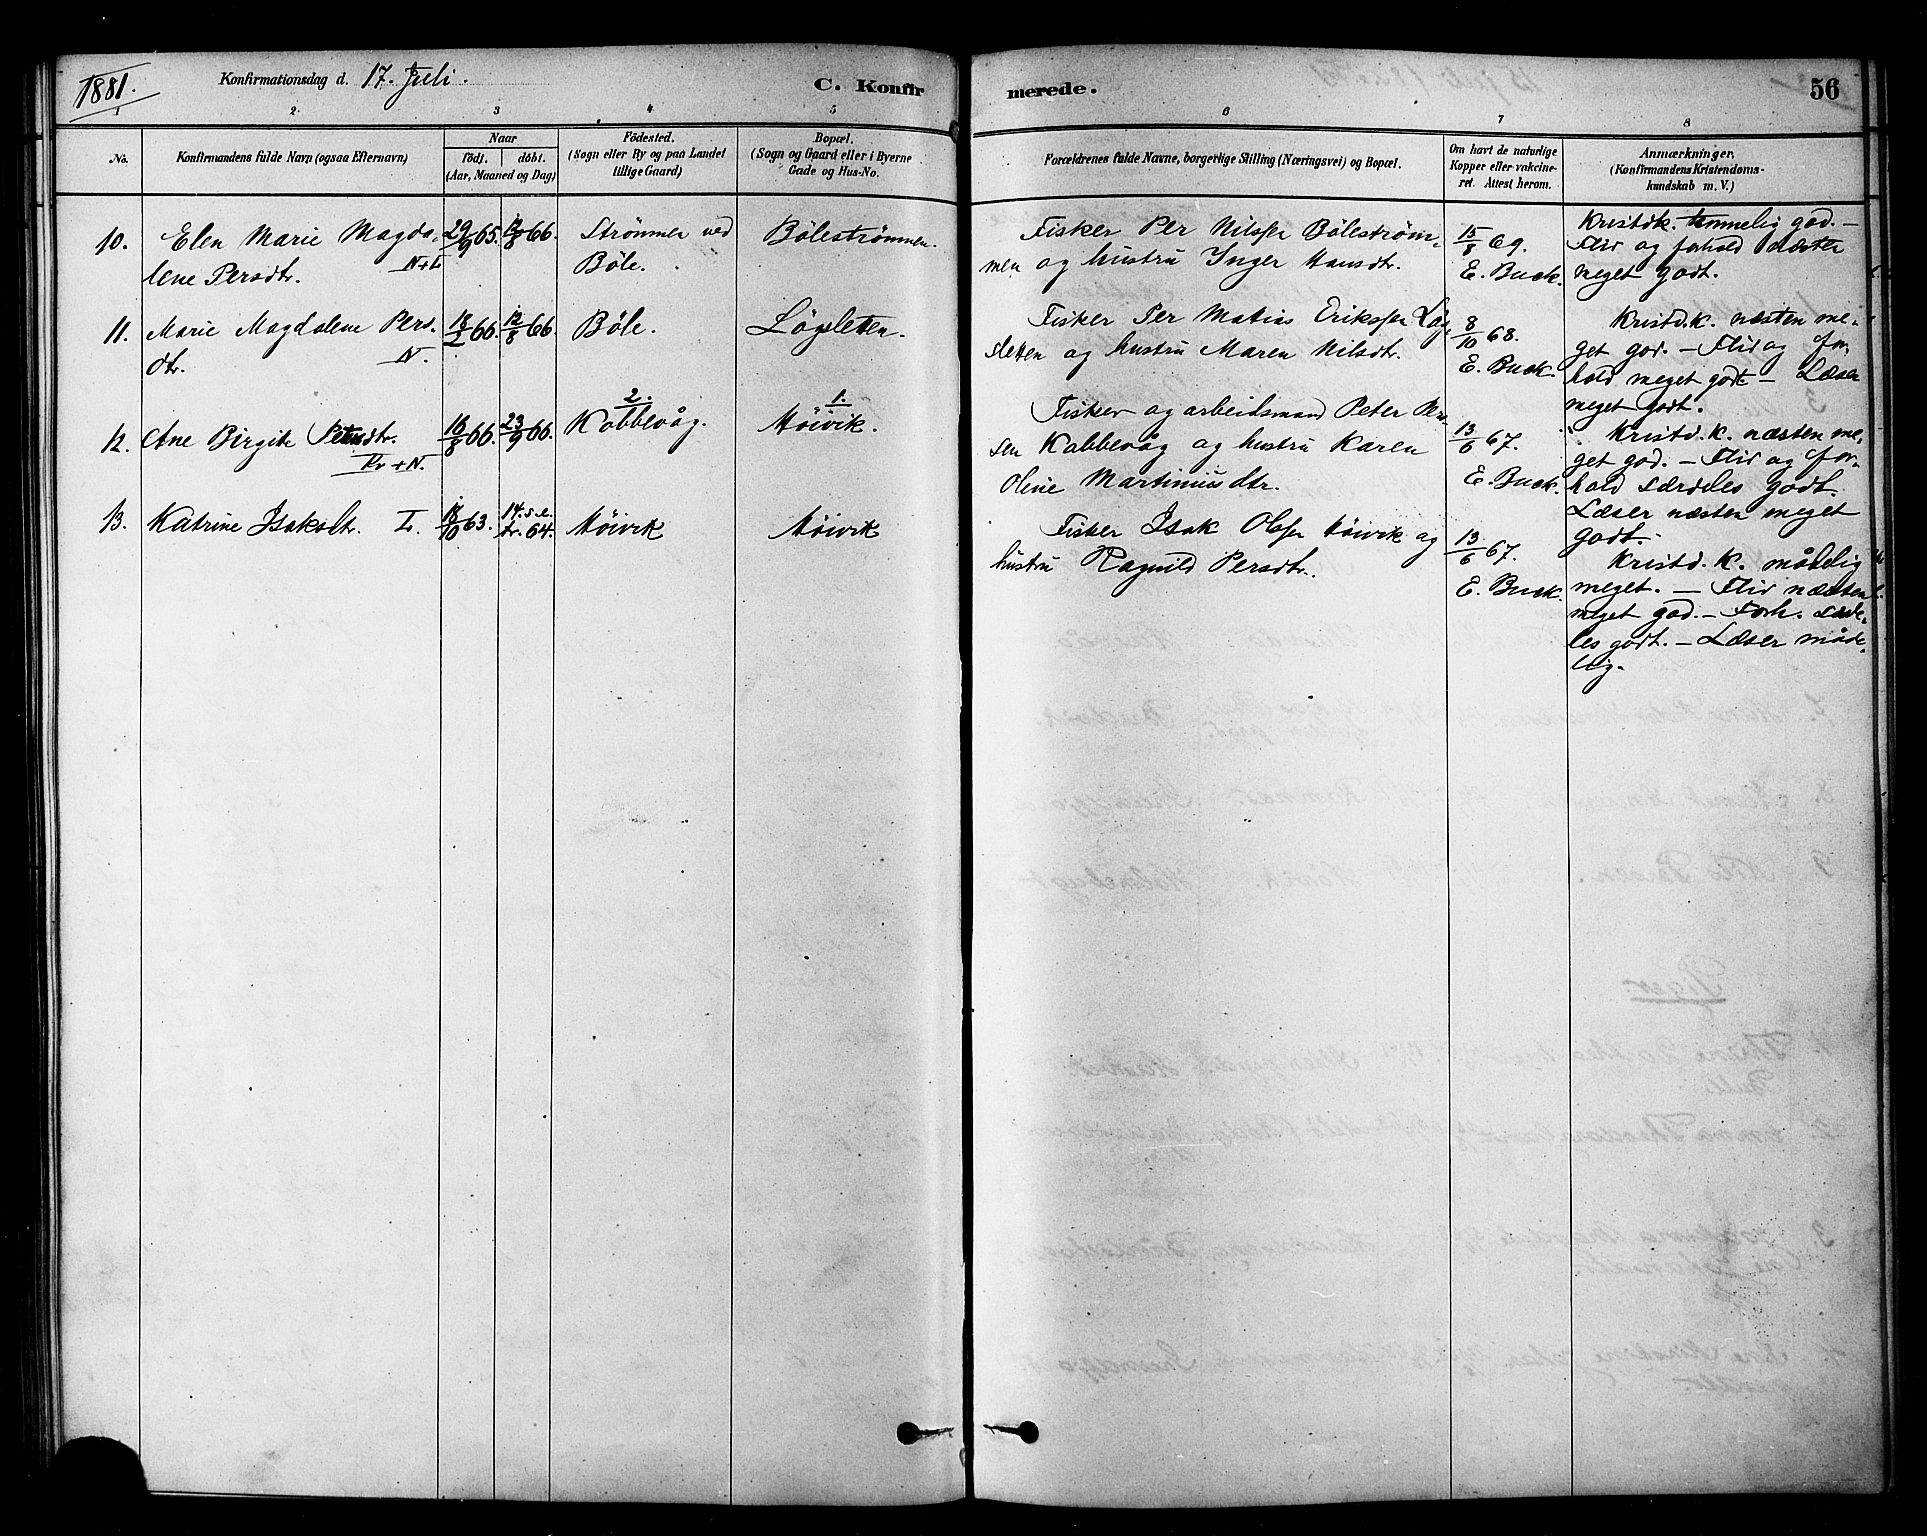 1881. Konfirmationsdag d. 17. Juli. C. Konfir merede. 56
1 2 3 4 5 6 7 8
No. Konfirmandens fulde Navn (ogsaa Efternavn)
Naar
født. døbt.
(Aar, Maaned og Dag)
Födested.
(Sogn eller By og paa Landet
tillige Gaard)
Bopæl.
(Sogn og Gaard eller i Byerne
Gade og Hus-No.
Forældrenes fulde Navne, borgerlige Stilling (Næringsvei) og Bopæl.
Om havt de naturlige
Kopper eller vakcine-
ret. Attest herom.
Anmærkninger.
(Konfirmandens Kristendoms-
kundskab m. V.)
10. Elen Marie Magda-
lene Persdtr. N+L
29/9 65. 12/8 66.
Strømmen ved
Bøle.
Bølestrømmen.
Fisker Per Nilssen Bølestrøm-
men og hustru Inger Hansdtr.
15/8 69.
E. Buck.
Kristdk. temmelig god. –
Flid og forhold næsten
meget godt.
11. Marie Magdalene Pers-
dtr. N.
18/2 66. 12/8 66.
Bøle.
Løgsletten.
Fisker Per Matias Erikssen Løg-
sletten og hustru Maren Nilsdtr.
8/10 68.
E. Buck.
Kristd.k. næsten me-
get god. – Flid og for-
hold meget godt – Læser
meget godt.
12. Ane Birgite Petersdtr.
Kv+N.
16/8 66. 23/9 66.
2.
Kobbevåg.
1.
Møivik.
Fisker og arbeidsmand Peter Per-
sen Kobbevåg og hustru Karen
Oline Martinusdtr.
13/6 67.
E. Buck.
Kristd.k. næsten me-
get god. – Flid og for-
hold særdeles godt.
Læser næsten meget
godt.
13. Katrine Isaksdtr. L.
18/10 63. 14. s.e.
tr. 64.
Møivik
Møivik
Fisker Isak Olsen Møivik og
hustru Ragnild Persdtr.
13/6 67.
E. Buck.
Kristd. K. mådelig
meget. – Flid næsten
meget god. – Forh. særde-
les godt. – Læser måde-
lig.